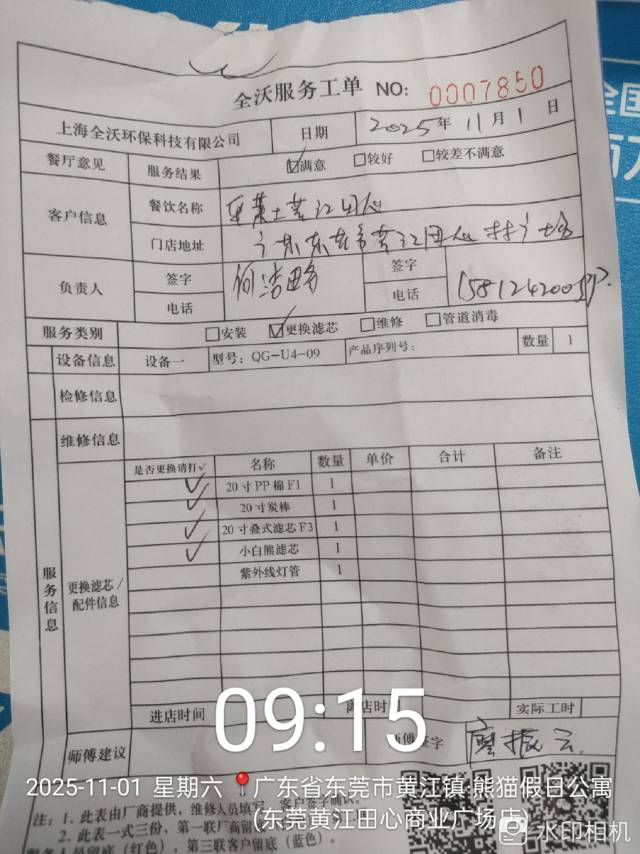 全沃服务工单 NO: 0007850
上海全沃环保科技有限公司 日期 2025年 11月 1日
餐厅意见 服务结果 ☑满意 □较好 □较差不满意
客户信息 餐饮名称
门店地址
负责人 签字 签字
电话 电话
服务类别 □安装 ☑更换滤芯 □维修 □管道消毒
设备信息 设备一 型号: QG-U4-09 产品序列号: 数量 1
检修信息
维修信息
服务信息
更换滤芯/配件信息
是否更换请打√ 名称 数量 单价 合计 备注
√ 20寸PP棉F1 1
√ 20寸炭棒 1
√ 20寸叠式滤芯F3 1
√ 小白熊滤芯 1
紫外线灯管 1
进店时间 离店时 实际工时
09:15
师傅建议 师傅签字 廖振云
2025-11-01 星期六 广东省东莞市黄江镇·熊猫假日公寓
(东莞黄江田心商业广场店)
注: 1. 此表由厂商提供, 维修人员填写, 客户签字确认。
2. 此表一式三份, 第一联厂商留
务人员留底 (红色), 第三联客户留底 (蓝色)。
水印相机
全国